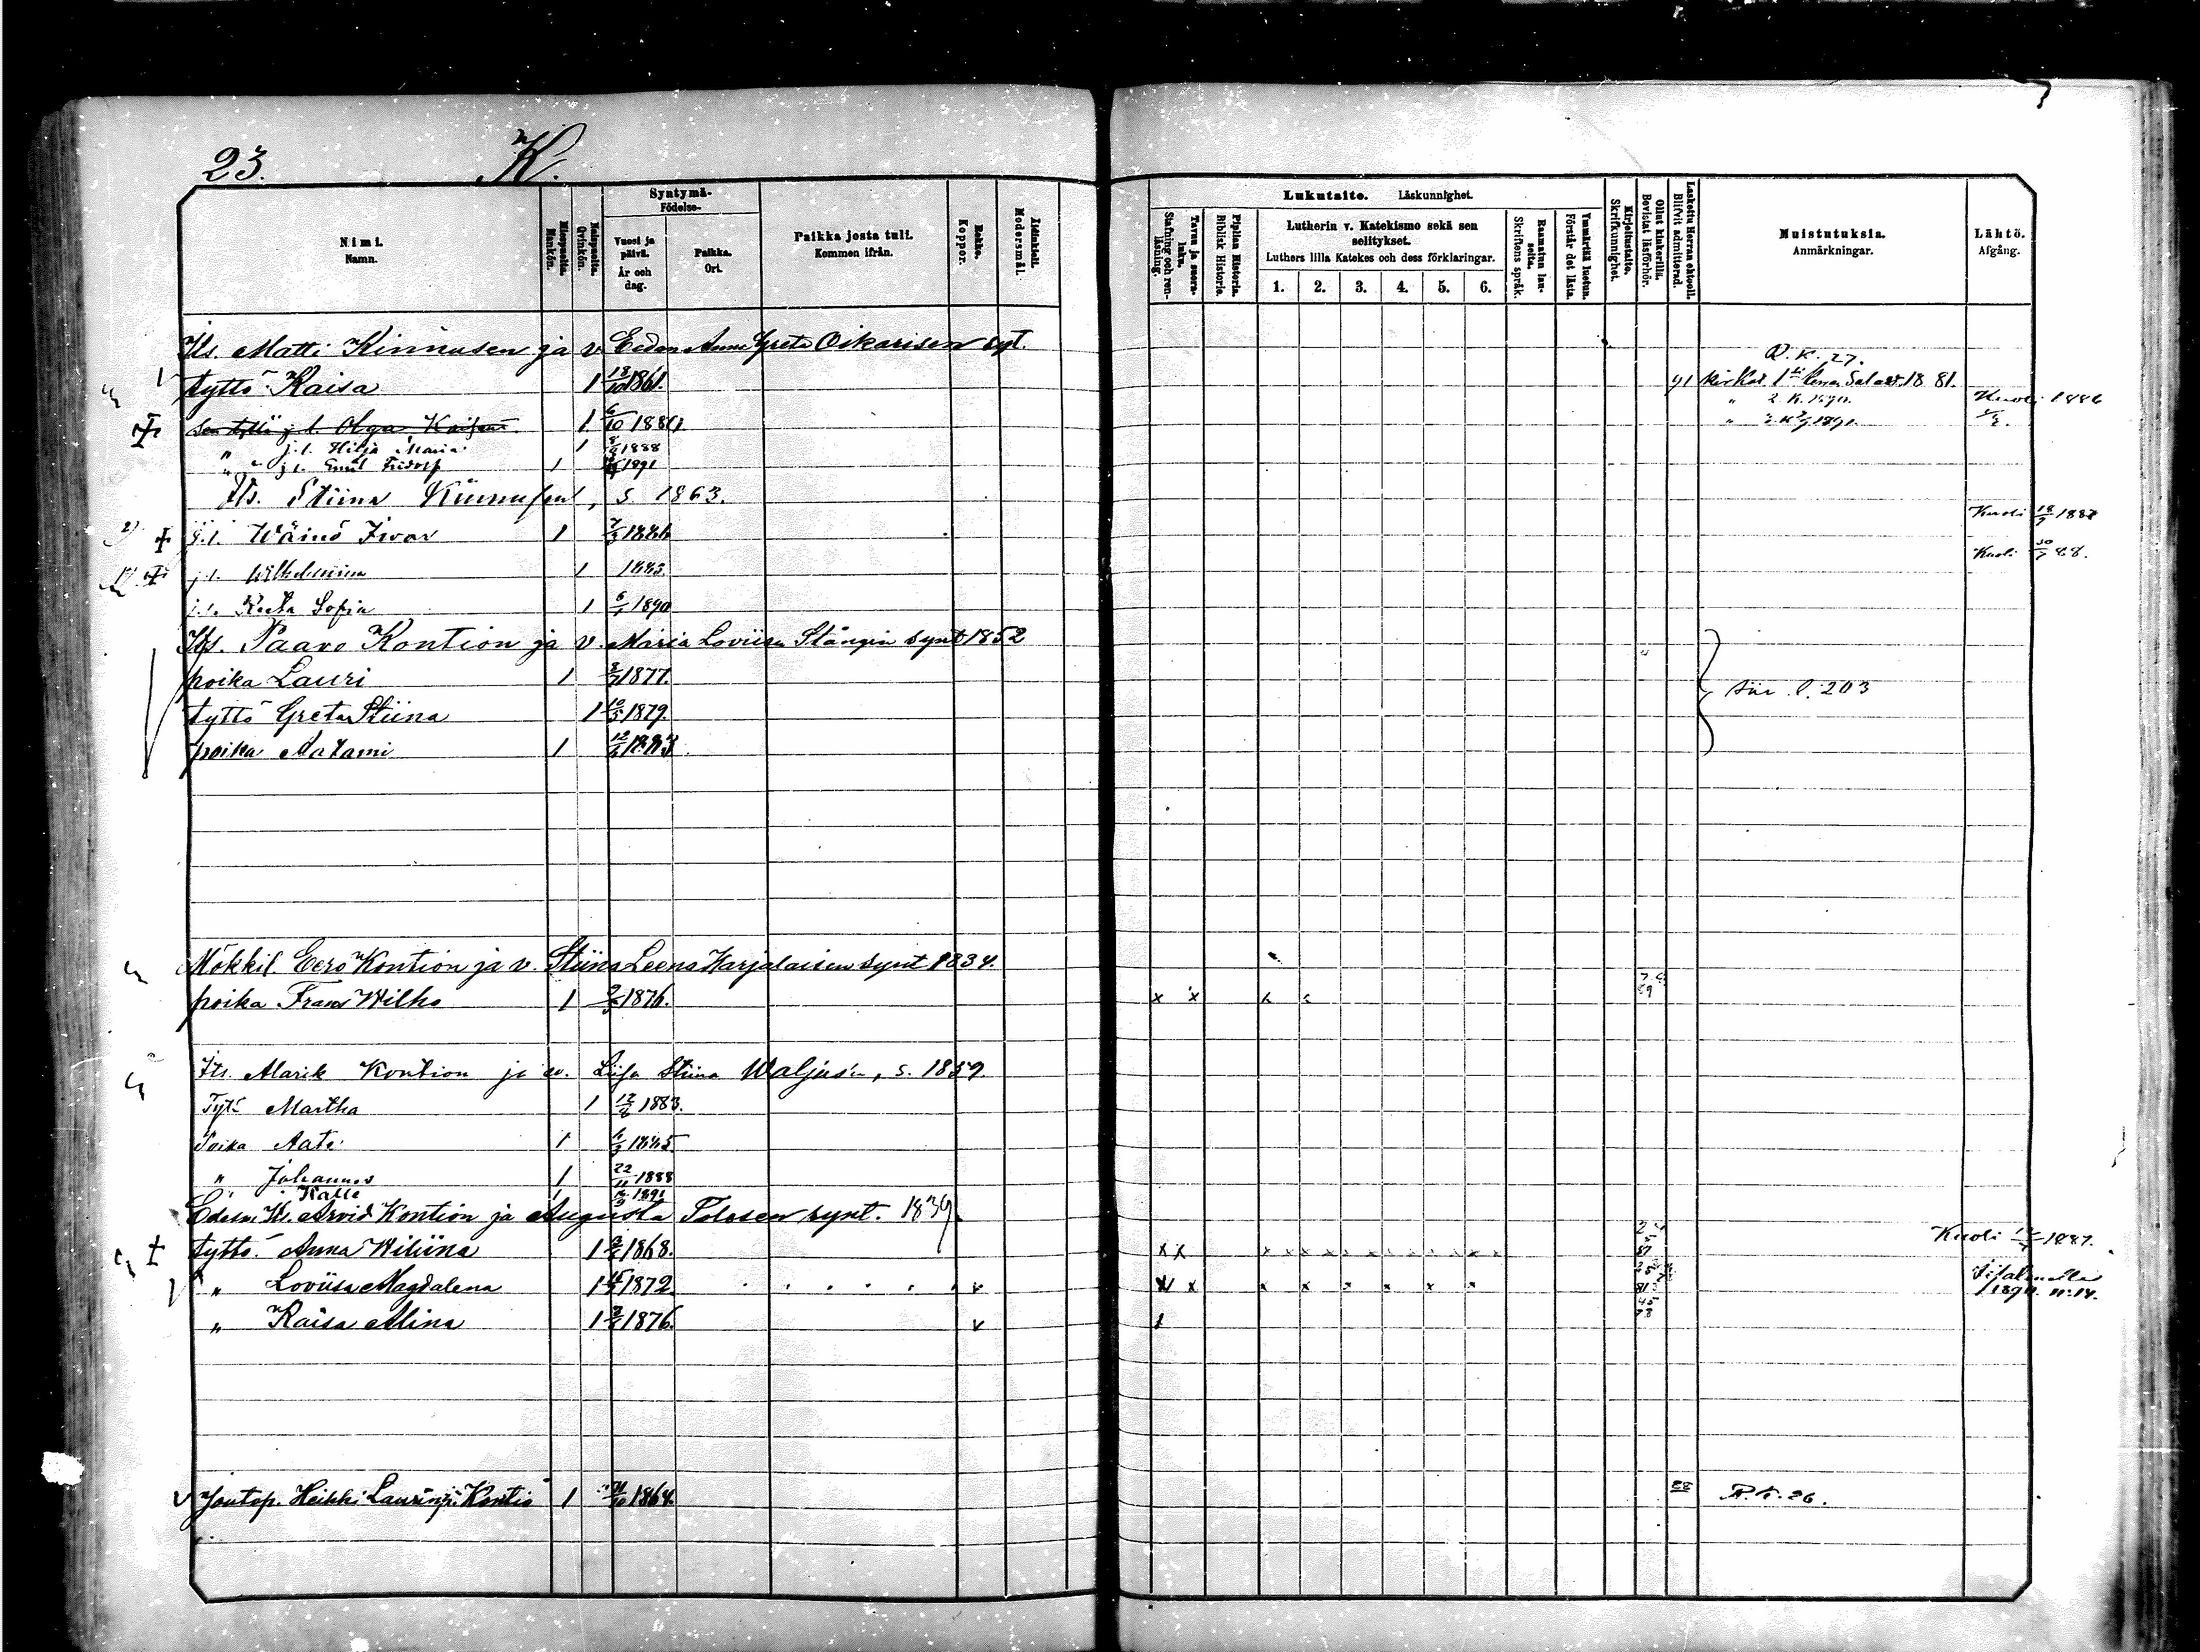 23. K.
Nimi. Namn.
Miespuolia. Mankön.
Naispuolia. Qvinkön.
Syntymä- Födelse-
Vuosi ja päivä. År och dag.
Paikka. Ort.
Paikka josta tuli. Kommen ifrån.
Rokko. Koppor.
Äidinkieli. Modersmål.
Lukutaito. Läskunnighet.
Tavuu ja suora- luku. Stafning och ren- läsning.
Piplian Historia. Biblisk Historie.
Lutherin v. Katekismo sekä sen selitykset.
Luthers lilla Katekes och dess förklaringar.
1. 2. 3. 4. 5. 6.
Raamatun lau- seita. Skriftens språk.
Ymmärtää luetun. Förstår det lästa.
Kirjoitustaito. Skrifkunnighet.
Ollut kinkerillä. Bevistat läsförhör.
Laskettu Herran ehtooll. Blifvit admitterad.
Muistutuksia. Anmärkningar.
Lähtö. Afgång.
Its. Matti Kinnusen ja v. Anna Greta Oikarisen syt.
R.K. 27.
tyttö Kaisa 1 18/10 1861. 91 1881.
Olga 1 6/10 1881 Kuoli 1886
" j.l. Hilja Maria 1 1888
" " j.l. Emil Fridolf 1 1891
Its. Stiina Kinnusen, s. 1863.
j.l. Wäinö Iwar 1 7/3 1886 Kuoli 18/7 1887
j.l. Wilhelmiina 1 1883. Kuoli 30/7 88.
j.l. Reeta Sofia 1 6/1 1890
Its. Paavo Kontion ja v. Maria Loviisa Stångin synt 1852
poika Lauri 1 1877.
siir. l. 203
tyttö Greta Stiina 1 1879.
poika Aatami 1 1883
Mökkil Eero Kontion ja v. Stiina Leena Karjalaisen synt 1834.
poika Frans Wilho 1 1876. x x x
Its. Alarik Kontion ja v. Liisa Stiina Waljus'n, s. 1859.
Tytö Martha 1 12/6 1883.
Poika Aate 1 6/3 1885
" Johannes 1 22/11 1888
" Kalle 1 1891
Edesm. It. Arvid Kontion ja Augusta Tolosen synt. 1839
tyttö Anna Wiliina 1 1868. x x 87 Kuoli 1887.
" Loviisa Magdalena 1 1872. v x x x x x x x 1890. n:14.
" Kaisa Alina 1 1876. v
Joutop. Heikki Laurinp. Kontio 1 1864. 88 R.K. 26.